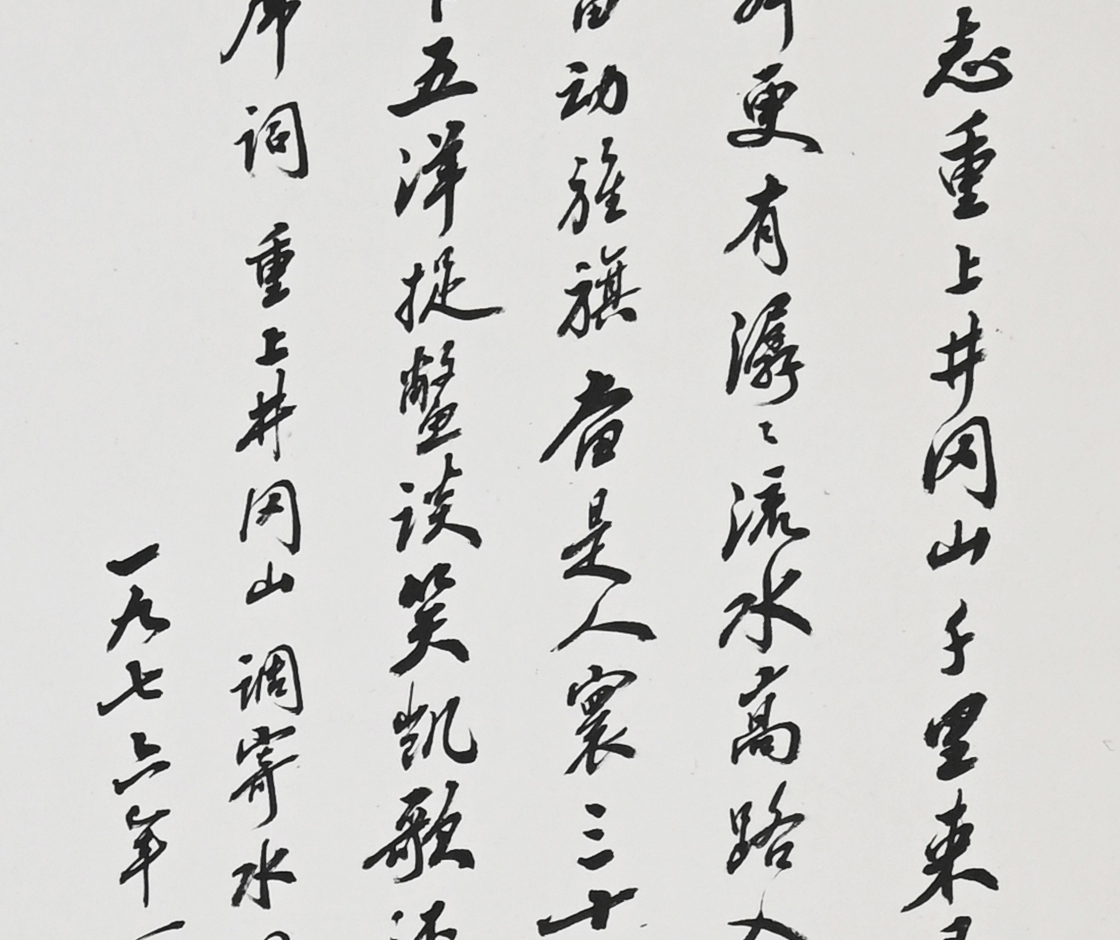 志重上井冈山千里来
更有潺〻流水高路入
动旌旗奋是人寰三十
五洋捉鳖谈笑凯歌还
席词 重上井冈山 调寄水
一九七六年一